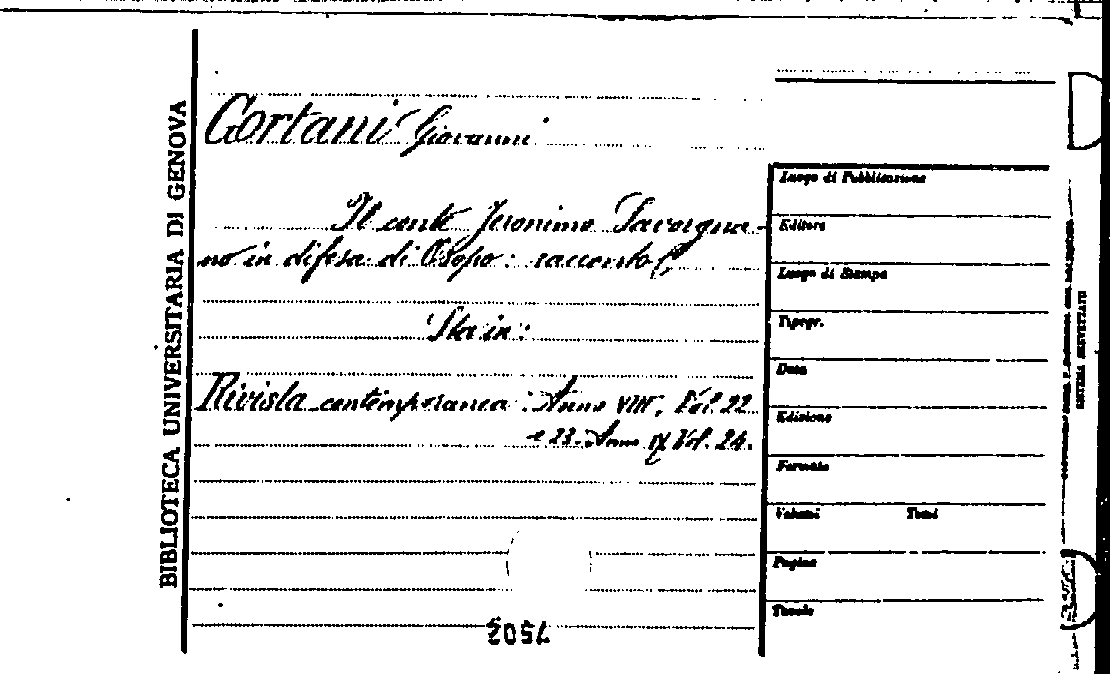 BIBLIOTECA UNIVERSITARIA DI GENOVA
Gortani Giovanni
Il conte Jeronimo Savorgna-
no in difesa di Osopo: racconto
Sta in:
Rivista contemporanea: Anno VIII, Vol. 22
e 23. Anno IX Vol. 24.
7502
Luogo di Pubblicazione
Editore
Luogo di Stampa
Tipogr.
Data
Edizione
Formato
Volumi Tomi
Pagine
Tavole
SISTEMA BREVETTATO